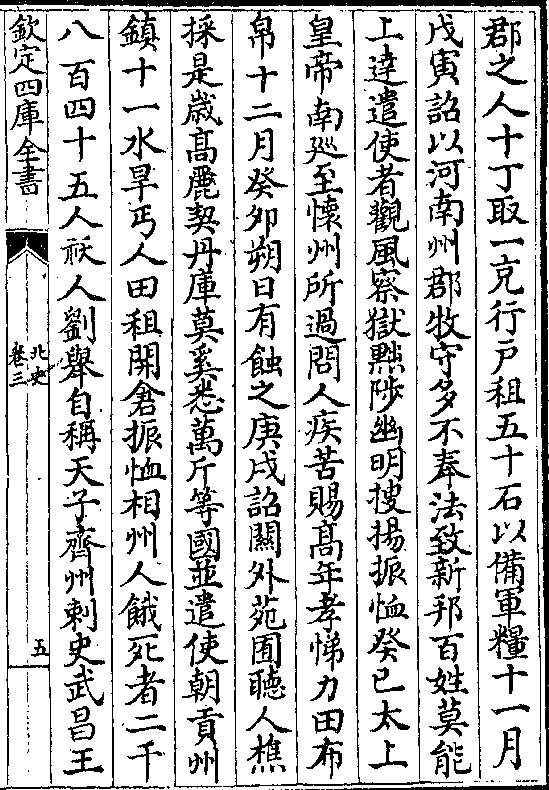 郡之人十丁取一充行户租五十石以備軍糧十一月
戊寅詔以河南州郡牧守多不奉法致新邦百姓莫能
上達遣使者觀風察獄黜陟幽明搜揚振恤癸巳太上
皇帝南廵至懷州所過問人疾苦賜髙年孝悌力田布
帛十二月癸卯朔日有蝕之庚戌詔關外苑囿聽人樵
採是歲髙麗契丹庫莫奚悉萬斤等國並遣使朝貢州
鎮十一水旱丐人田租開倉振恤相州人餓死者二千
八百四十五人祅人劉舉自稱天子齊州刺史武昌王
欽定四庫全書
北史
卷三
五